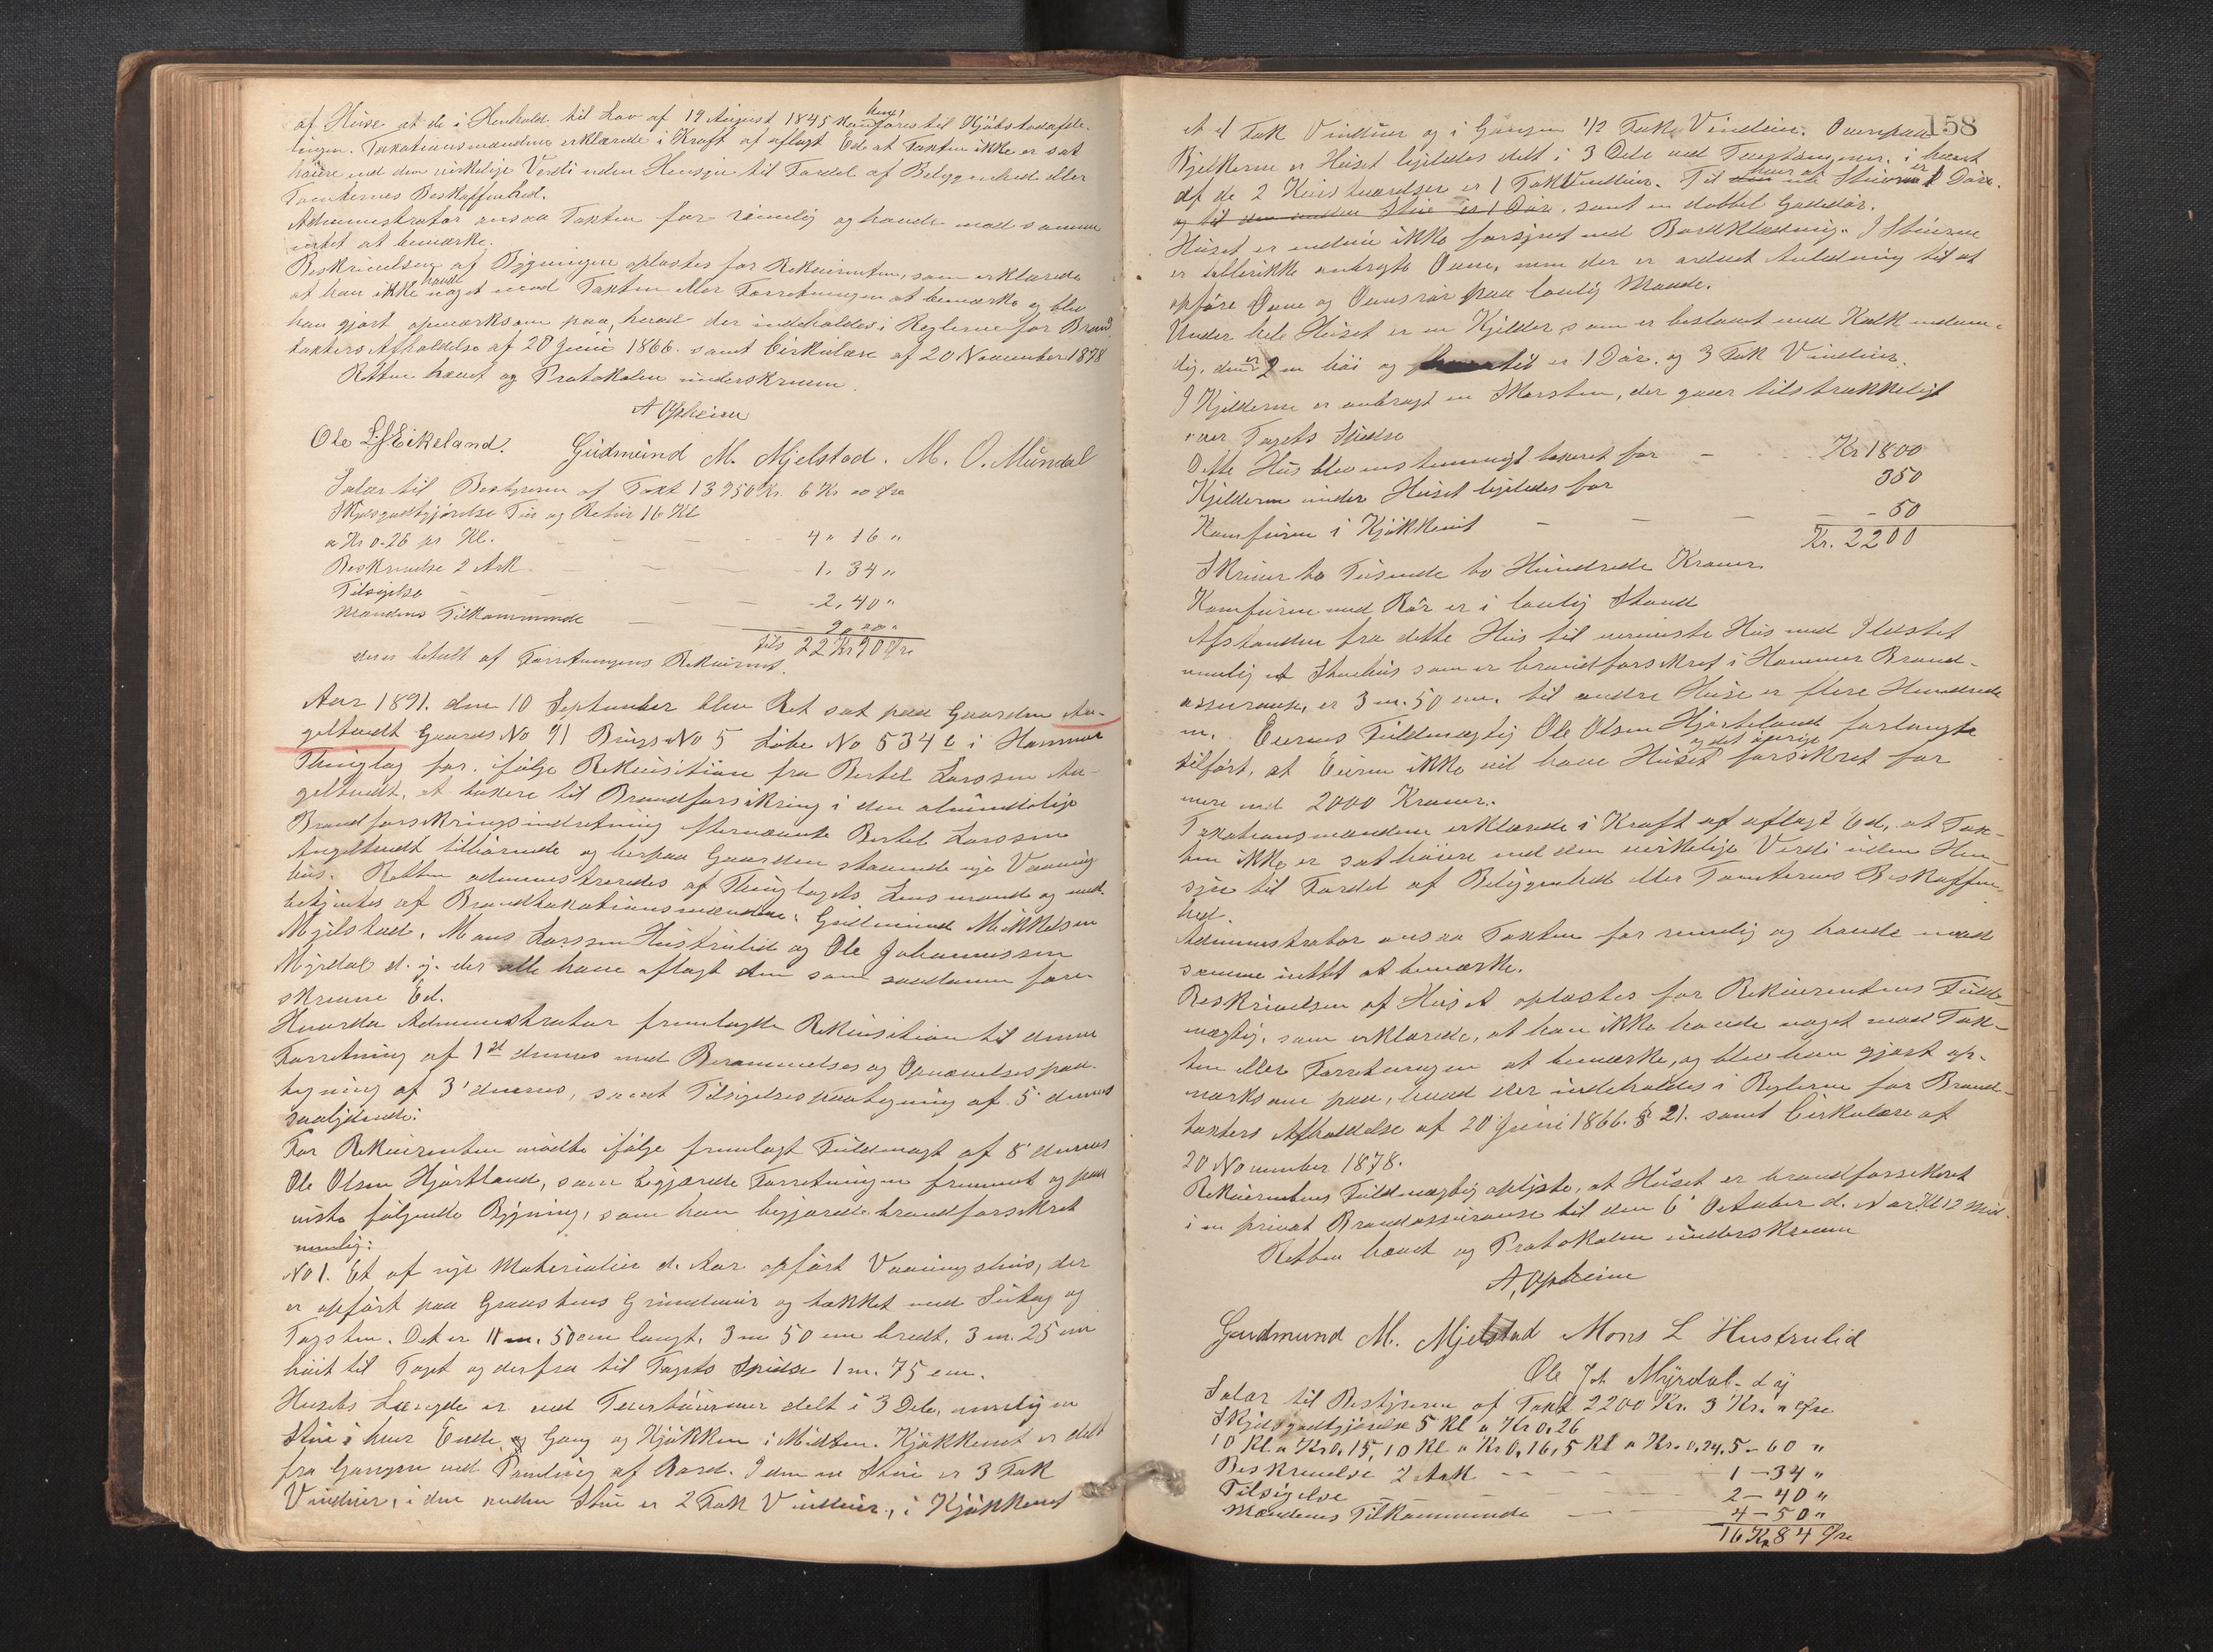 af Huse at de i Henhold til Lov af 19 August 1845 kan henføres til Kjøbstadafde-
lingen. Taxationsmændene erklærede i Kraft af aflagt Ed at Taxten ikke er sat
høiere end den virkelige Verdi uden Hensyn til Fordel af Beliggenhed eller
Tomternes Beskaffenhed.
Administrator ansaa Taxten for rimelig og havde mod samme
intet at bemærke.
Beskrivelsen af Bygningen oplæstes for Rekvirenten, som erklærede
at han ikke havde noget imod Taxten eller Forretningen at bemærke og blev
han gjort opmærksom paa, hvad der indeholdes i Reglerne for Brand
taxters Afholdelse af 20 Juni 1866. samt Cirkulære af 20 November 1878
Retten hævet og Protokolen underskreven.
A Opheim
Ole L. Eikeland. Gudmund M. Mjelstad. M. O. Mundal
Salær til Bestyreren af Taxt 13950 Kr. 6 Kr øre
Skydsgodtgjørelse Tur og Retur 16 Kl
a Kr 0.26 pr Kl. - - - 4 " 16 "
Beskrivelse 2 Ark - - - 1. 34 "
Tilsigelse - - - 2. 40 "
Mændenes Tilkommende - - 9
tils 22 Kr 90 Øre
der er betalt af Forretningens Rekvirent.
Aar 1891. den 10 September blev Ret sat paa Gaarden An-
geltvedt Gaards No 91 Brugs No 5 Løbe No 534 c i Hammer
Thinglag for ifølge Rekvisition fra Bertel Larssen An-
geltvedt, at taxere til Brandforsikring i den almindelige
Brandforsikringsindretning efternævnte Bertel Larssen
Angeltvedt tilhørende og herpaa Gaarden staaende nye Vaanings
hus. Retten administreredes af Thinglagets Lensmand og med-
betjentes af Brandtaxationsmændene: Gudmund Mikkelsen
Mjelstad, Mons Larssen Hustrulid og Ole Johannessen
Myrdal d. y. der alle have aflagt den som saadanne fore-
skrevne Ed.
Hvorda Administrator fremlagde Rekvisition til denne
Forretning af 1st dennes med Berammelses og Opnævnelsespaa-
tegning af 3' dennes, samt Tilsigelsespaategning af 5' dennes
saalydende:
For Rekvirenten mødte ifølge fremlagt Fuldmagt af 8' dennes
Ole Olsen Hjørtland, som begjærede Forretningen fremmet og paa
viste følgende Bygning, som han begjærede brandforsikret
nemlig:
No 1. Et af nye Materialier d. Aar opført Vaaningshus, der
er opført paa Graastens Grundmur og tækket med Sutag og
Tagsten. Det er 11 m. 50 cm langt, 3 m 50 cm bredt, 3 m. 25 cm
høit til Taget og derfra til Tagets Spidse 1 m. 75 cm.
Husets Længde er ved Tvertømmer delt i 3 Dele, nemlig en
Stue i hver Ende og Gang og Kjøkken i Midten. Kjøkkenet er delt
fra Gangen ved Paneling af Bord. I den ene Stue er 3 Fak
Vinduer, i den anden Stue er 2 Fak Vinduer, i Kjøkkenet
158
et 1 Fak Vinduer og i Gangen 1/2 Fak Vinduer. Ovenpaa
Bjelkerne er Huset ligeledes delt i 3 Dele ved Tvertømmer, i hvert
af de 2 Kvistværelser er 1 Fak Vinduer. Til hver af Stuerne er 1 Dør.
og til den anden Stue er 1 Dør, samt en dobbel Gadedør.
Huset er endnu ikke forsynet med Bordklædning. I Stuerne
er hellerikke anbragte Ovne, men der er ordnet Anledning til at
opføre Ovne og Ovnsrør paa lovlig Maade.
Under hele Huset er en Kjelder, som er beslaaet med Kalk indven-
dig, den er 2 m høi og til er 1 Dør. og 3 Fak Vinduer.
I Kjelderen er anbragt en Skorsten, der gaaer tilstrækkeligt
over Tagets Spidse
Dette Hus blev enstemmigt taxeret for - - Kr 1800
Kjelderen under Huset ligeledes for 350
Komfuren i Kjøkkenet - - - - 50
Kr. 2200
Skriver to Tusende to Hundrede Kroner.
Komfuren med Rør er i lovlig Stand
Afstanden fra dette Hus til nærmeste Hus med Ildsted
nemlig et Stuehus som er brandforsikret i Hammer Brand-
assurance, er 3 m. 50 cm, til andre Huse er flere Hundrede
m. Eierens Fuldmægtig Ole Olsen Hjørteland forlangte
tilført, at Eieren ikke vil have Huset og det øvrige forsikret for
mere end 2000 Kroner.
Taxationsmændene erklærede i Kraft af aflagt Ed, at Tax-
ten ikke er sat høiere end den virkelige Verdi uden Hen-
syn til Fordel af Beliggenhed eller Tomternes Beskaffen-
hed.
Administrator ansaa Taxten for rimelig og havde mod
samme intet at bemærke.
Beskrivelsen af Huset oplæstes for Rekvirentens Fuld-
mægtig, som erklærede, at han ikke havde noget mod Tax-
ten eller Forretningen at bemærke, og blev han gjort op-
mærksom paa, hvad der indeholdes i Reglerne for Brand-
taxters Afholdelse af 20 Juni 1866. § 21. samt Cirkulære af
20 November 1878.
Rekvirentens Fuldmægtig oplyste, at Huset er brandforsikret
i en privat Brandassurance til den 6' October d. A. Kl 12 Mid.
Retten hævet og Protokolen underskreven
A, Opheim
Gudmund M. Mjelstad Mons L Hustrulid
Ole Joh Myrdal d y
Salær til Bestyreren af Taxt 2200 Kr. 3 Kr. " Øre
Skydsgodtgjørelse 5 Kl a Kr 0,26
10 Kl. a Kr 0,15, 10 Kl a Kr 0,16, 5 Kl a Kr. 0,24, 5 - 60 "
Beskrivelse 2 Ark - - - 1 - 34 "
Tilsigelse - - - 2 - 40 "
Mændenes Tilkommende - - 4 - 50 "
16 Kr 84 Øre